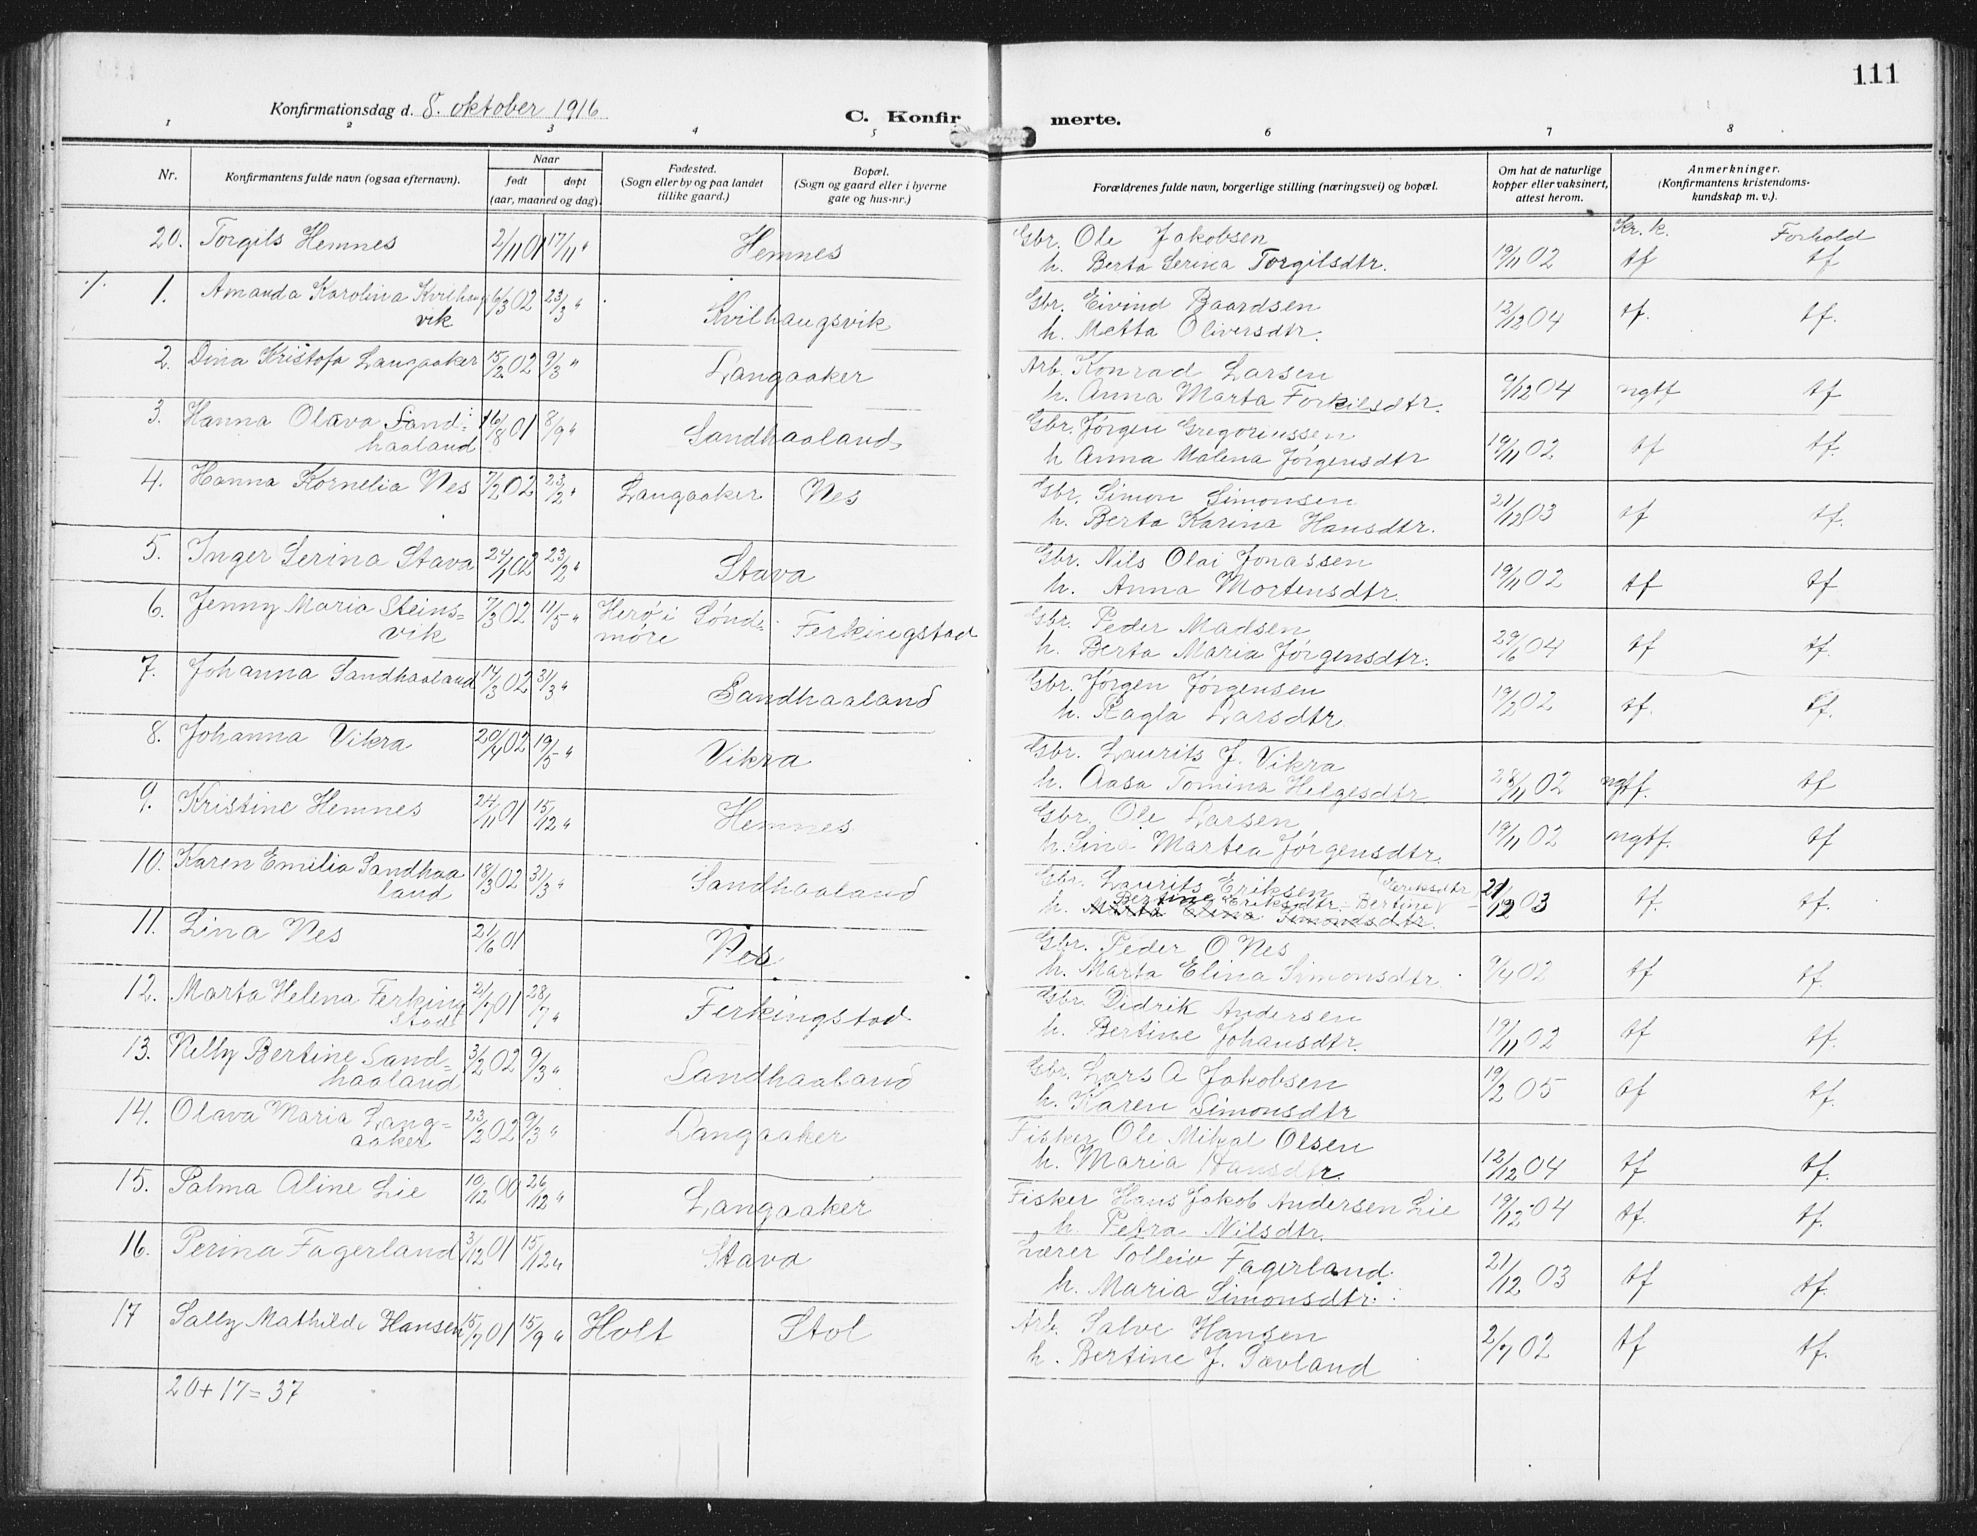 111
Konfirmationsdag d. 8. oktober 1916
C. Konfirmerte.
1 2 3 4 5 6 7 8
Nr. Konfirmantens fulde navn (ogsaa efternavn). Naar født døpt (aar, maaned og dag). Fødested. (Sogn eller by og paa landet tillike gaard.) Bopæl. (Sogn og gaard eller i byerne gate og hus-nr.) Forældrenes fulde navn, borgerlige stilling (næringsvei) og bopæl. Om hat de naturlige kopper eller vaksinert, attest herom. Anmerkninger. (Konfirmantens kristendomskundskap m. v.).
Kr. k. Forhold
20. Torgils Hemnes 2/11 01 17/11 " Hemnes Gbr. Ole Jakobsen
h. Berta Serina Torgilsdtr. 19/11 02 tf tf
1. Amanda Karolina Kvilhaugsvik 16/3 02 23/3 " Kvilhaugsvik Gbr. Eivind Baardsen
h. Metta Oliversdtr. 12/12 04 tf. tf.
2. Dina Kristofa Langaaker 15/2 02 9/3 " Langaaker Arb. Konrad Larsen
h. Anna Marta Torkilsdtr. 9/12 04 mgtf tf
3. Hanna Olava Sandhaaland 16/8 01 8/9 " Sandhaaland Gbr. Jørgen Gregoriussen
h Anna Malena Jørgensdtr 19/11 02 tf tf.
4. Hanna Kornelia Nes 7/2 02 23/2 " Langaaker Nes Gbr. Simon Simonsen
h. Berta Karina Hansdtr. 21/12 03 tf tf.
5. Inger Serina Stava 24/1 02 23/2 " Stava Gbr. Nils Olai Jonassen
h. Anna Mortensdtr. 19/11 02 tf tf
6. Jenny Maria Steinsvik 7/3 02 11/5 " Herø i Søndmøre Ferkingstad Gbr. Peder Madsen
h. Berta Maria Jørgensdtr. 29/6 04 tf tf.
7. Johanna Sandhaaland 14/3 02 31/3 " Sandhaaland Gbr. Jørgen Jørgensen
h. Ragla Larsdtr. 19/2 02 tf. tf.
8. Johanna Vikra 20/4 02 19/5 " Vikra Gbr. Laurits J. Vikra
h. Aasa Tomina Helgesdtr 28/11 02 mgtf. tf
9. Kristine Hemnes 24/11 01 15/12 " Hemnes Gbr. Ole Larsen
h. Lina Martea Jørgensdtr. 19/11 02 mgtf. tf
10. Karen Emilia Sandhaaland 18/3 02 31/3 " Sandhaaland Gbr. Laurits Eriksen
h. Bertine Eriksdtr. Marta Elina Simonsdtr. 21/12 03 tf. tf.
11. Lina Nes 21/6 01 Nes Gbr. Peder O Nes
h. Marta Elina Simonsdtr. 9/4 02 tf tf.
12. Marta Helena Ferkingstad 2/7 01 28/7 " Ferkingstad Gbr. Didrik Andersen
h. Bertine Johansdtr. 19/11 02 tf tf.
13. Nelly Bertine Sandhaaland 3/2 02 9/3 " Sandhaaland Gbr. Lars A Jakobsen
h. Karen Simonsdtr 19/2 05 tf tf.
14. Olava Maria Langaaker 23/2 02 9/3 " Langaaker Fisker Ole Mikal Olsen
h. Maria Hansdtr. 12/12 04 tf tf.
15. Palma Aline Lie 10/12 00 26/12 " Langaaker Fisker Hans Jakob Andersen Lie
h. Petra Nilsdtr. 19/12 04 tf. tf.
16. Perina Fagerland 3/12 01 15/12 " Stava Lærer Tolleiv Fagerland
h. Maria Simonsdtr. 21/12 03 tf tf.
17 Sally Mathilde Hansen 15/7 01 15/9 " Holt Stol Arb. Salve Hansen
h. Bertine J. Sævland 2/7 02 tf tf.
20 + 17 = 37